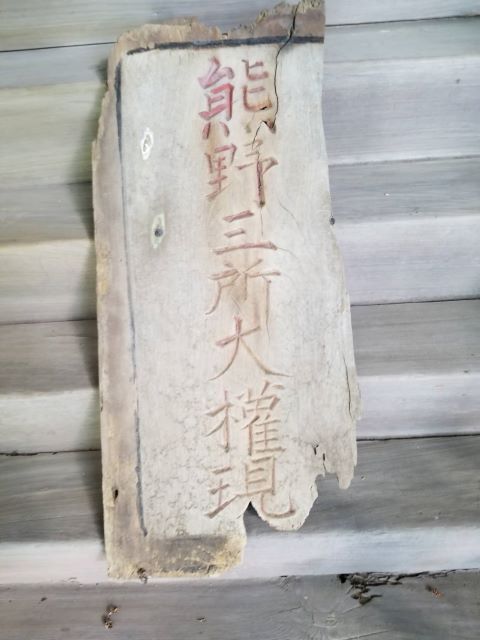 熊野三所大権現